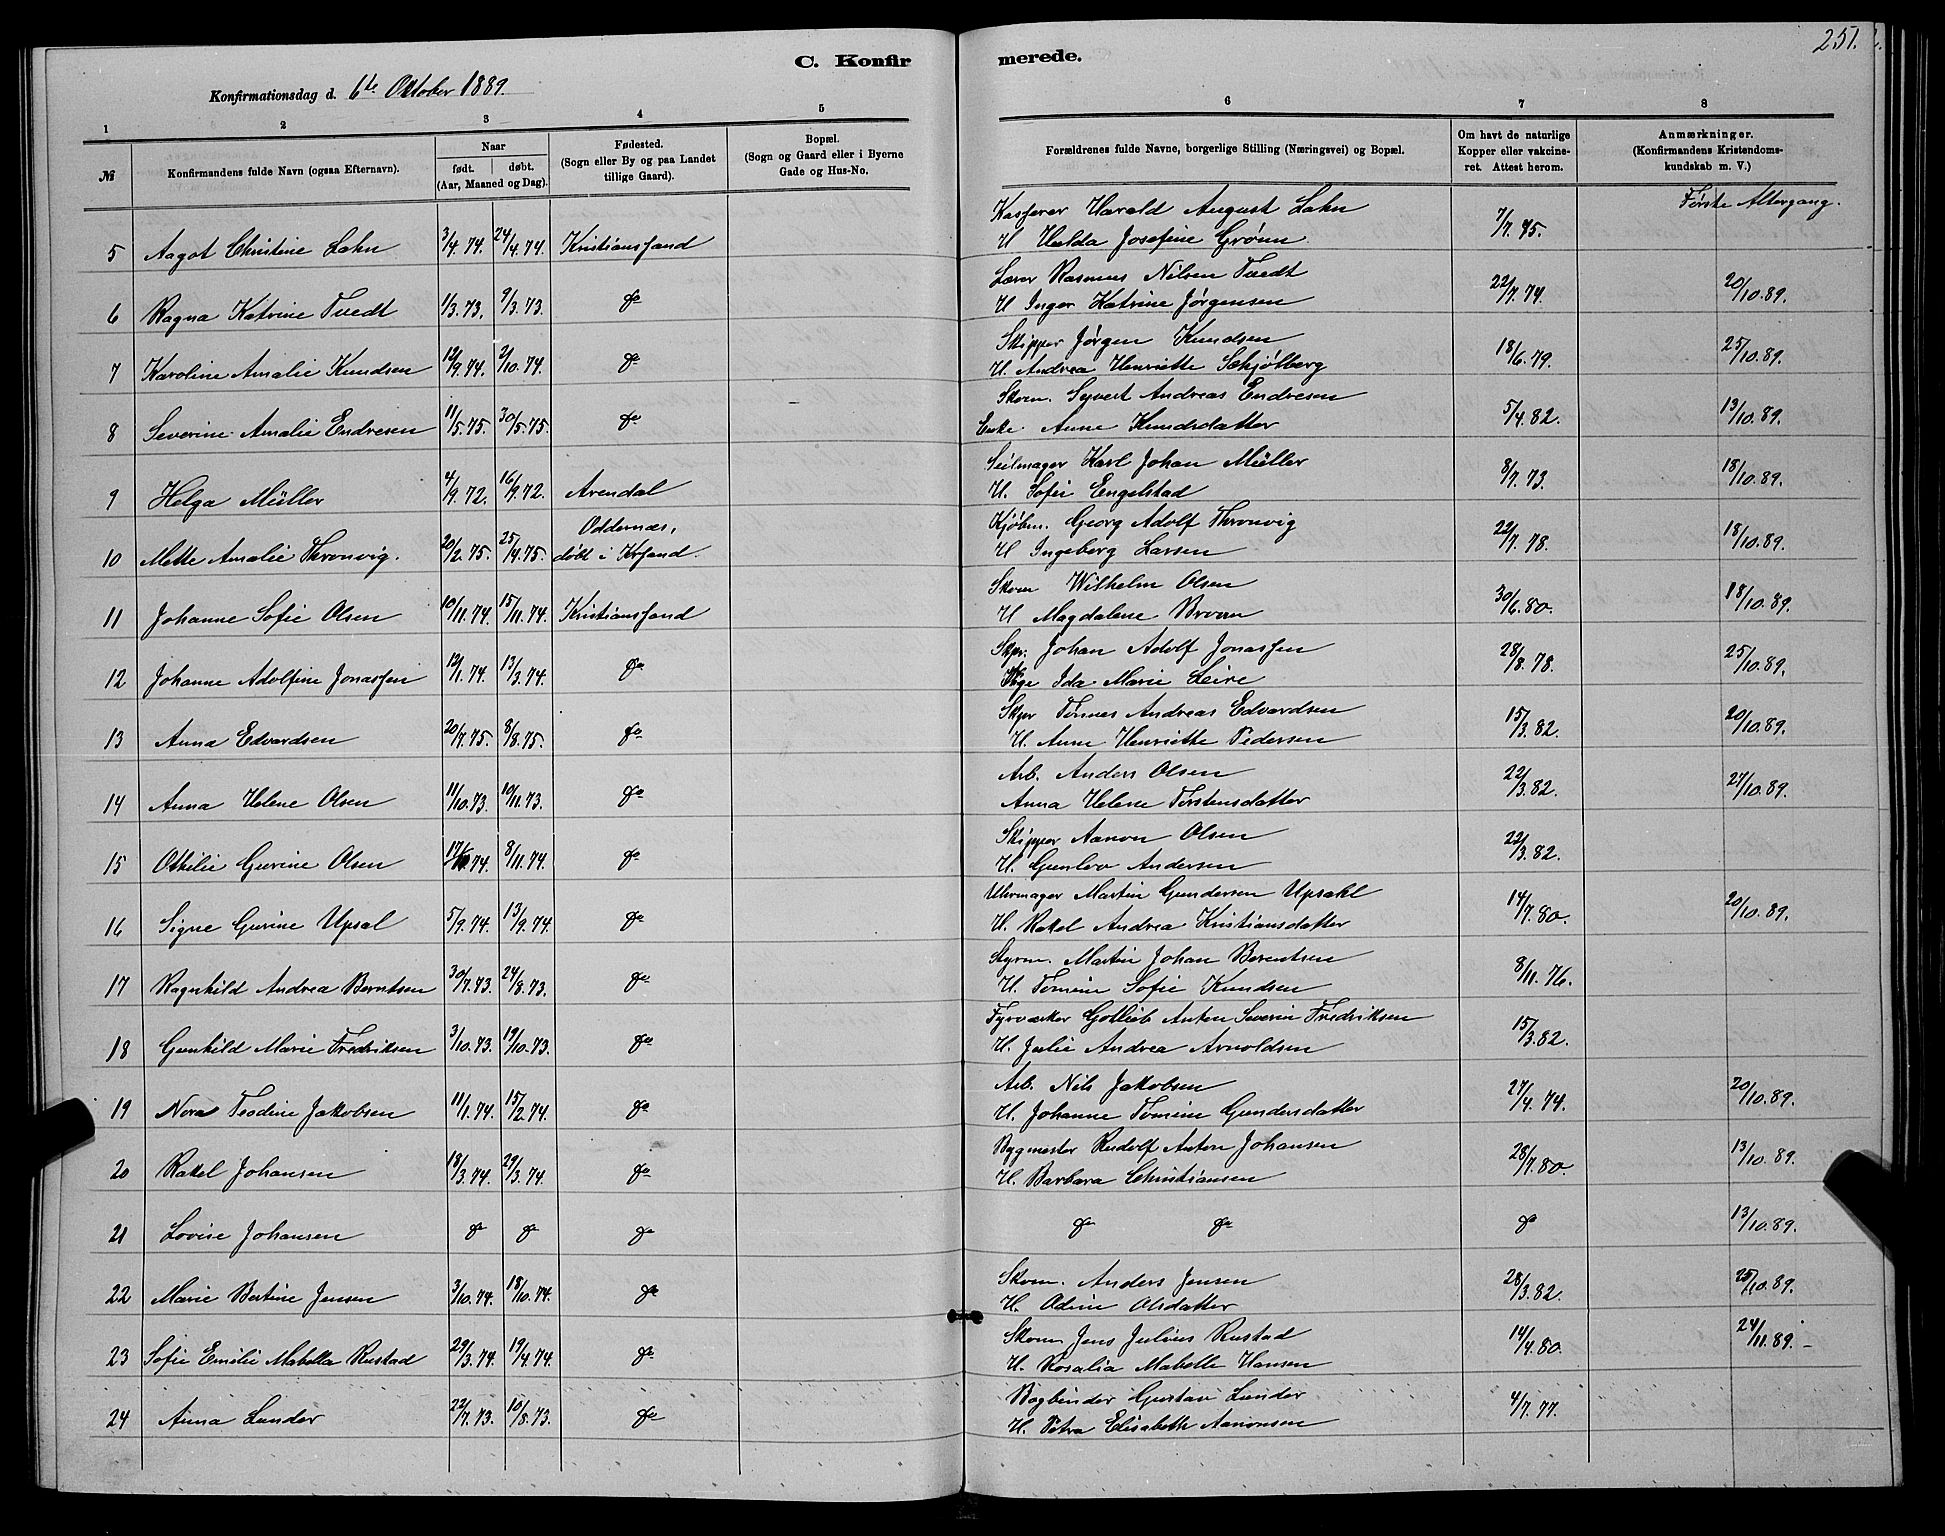 251.
C. Konfirmerede.
Konfirmationsdag d. 6te Oktober 1889.
1 2 3 4 5 6 7 8
№
Konfirmandens fulde Navn (ogsaa Efternavn).
Naar
født. døbt.
(Aar, Maaned og Dag).
Fødested.
(Sogn eller By og paa Landet
tillige Gaard).
Bopæl.
(Sogn og Gaard eller i Byerne
Gade og Hus-No.
Forældrenes fulde Navne, borgerlige Stilling (Næringsvei) og Bopæl.
Om havt de naturlige
Kopper eller vakcine-
ret. Attest herom.
Anmærkninger.
(Konfirmandens Kristendoms-
kundskab m. V.)
Første Altergang.
Kasserer Harald August Lahn
5 Aagot Christine Lahn 3/4.74. 24/4.74. Kristianssand H Hulda Josefine Grønn 7/7.75.
Lærer Rasmus Nilsen Tvedt
6 Ragna Katrine Tvedt 1/3.73. 9/3.73. do H Inger Katrine Jørgensen 22/7.74. 20/10.89.
Skipper Jørgen Knudsen
7 Karoline Amalie Knudsen 12/9.74. 2/10.74. do H. Andrea Henriette Schjølberg 18/6.79. 25/10.89.
Skom. Syvert Andreas Endresen
8 Severine Amalie Endresen 11/5.75. 30/5.75. do Enke Anne Knudsdatter 5/4.82. 13/10.89.
Seilmager Karl Johan Müller
9 Helga Müller 4/9.72. 16/9.72. Arendal H. Sofie Engelstad 8/7.73. 18/10.89.
Oddernæs, Kjøbm. Georg Adolf Thronvig
10 Mette Amalie Thronvig. 20/2.75. 25/4.75. døbt i Krsand. H Ingeborg Larsen 22/7.78. 18/10.89.
Skom Wilhelm Olsen
11 Johanne Sofie Olsen 10/11.74. 15/11.74. Kristianssand H Magdalene Broen 30/6.80. 18/10.89.
Skpr. Johan Adolf Jonassen
12 Johanne Adolfine Jonassen 12/1.74. 13/3.74. do Ida Marie Leire 28/8.78. 25/10.89.
Skpr Tønnes Andreas Edvardsen
13 Anna Edvardsen 20/7.75. 8/8.75. do H. Anne Henriette Pedersen 15/3.82. 20/10.89.
Arb. Anders Olsen
14 Anna Helene Olsen 11/10.73. 10/11.73. do Anna Helene Torstensdatter 22/3.82. 27/10.89.
Skipper Aanon Olsen
15 Othilie Gurine Olsen 17/10.74. 8/11.74. do H. Gunlov Andersen 22/3.82.
Uhrmager Martin Gundersen Upsahl
16 Signe Gurine Upsal 5/9.74. 13/9.74. do H. Rakel Andrea Kristiansdatter 14/7.80. 20/10.89.
Styrm. Martin Johan Berentsen
17 Ragnhild Andrea Berntsen 30/7.73. 24/8.73. do H. Tomine Sofie Knudsen 8/11.76.
Fyrværker Gotlieb Anton Severin Fredriksen
18 Gunhild Marie Fredriksen 3/10.73. 19/10.73. do H. Julie Andrea Arnoldsen 15/3.82.
Arb. Nils Jakobsen
19 Nora Teodine Jakobsen 11/1.74. 15/2.74. do H. Johanne Tomine Gundersdatter 27/4.74. 20/10.89.
Bygmester Rudolf Anton Johansen
20 Rakel Johansen 18/3.74. 29/3.74. do H. Barbara Christiansen 28/7.80. 13/10.89.
21 Lovise Johansen do do do do do do 13/10.89.
Skom. Anders Jensen
22 Marie Bertine Jensen 3/10.74. 18/10.74. do H. Odine Olsdatter 28/3.82. 25/10.89.
Skom Jens Julius Rustad
23 Sofie Emilie Mabella Rustad 29/3.74. 19/4.74. do H. Rosalia Mabelle Hansen 14/4.80. 24/11.89.
Bogbinder Gustav Lunder
24 Anna Lunder 22/7.73. 10/8.73. do H. Petra Elisabeth Aanonsen 4/7.77.